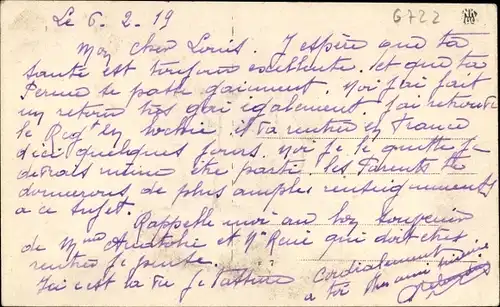 Le 6. 2. 19
6722
Mon cher Louis. J'espère que ta
santé est toujours excellente. et que ta
Perme se passe gaiment. Moi j'ai fait
un retour très gai également. J'ai retrouvé
le Reg^t en et va rentrer en France
d'ici quelques jours. Moi je le quitte je
devrais même être parti. les Parents te
donnerons de plus amples renseignements
a ce sujet.
Rappelle moi au bon souvenir
de M^me et M^r René qui doit être
rentré je pense.
Ici c'est la vie je t'assure
Cordialement
a toi ton ami